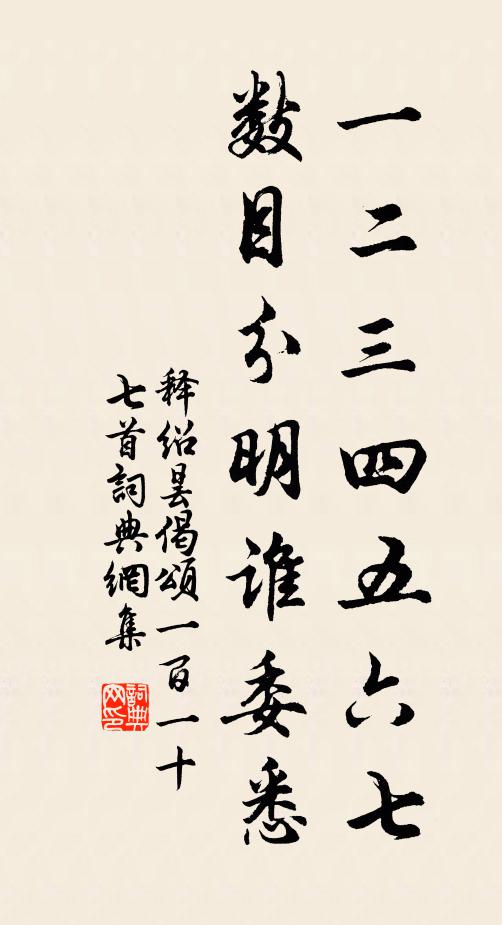 一二三四五六七
数目分明谁委悉
释绍昙偈頌一百一十
七首詞典網集
詞典网印